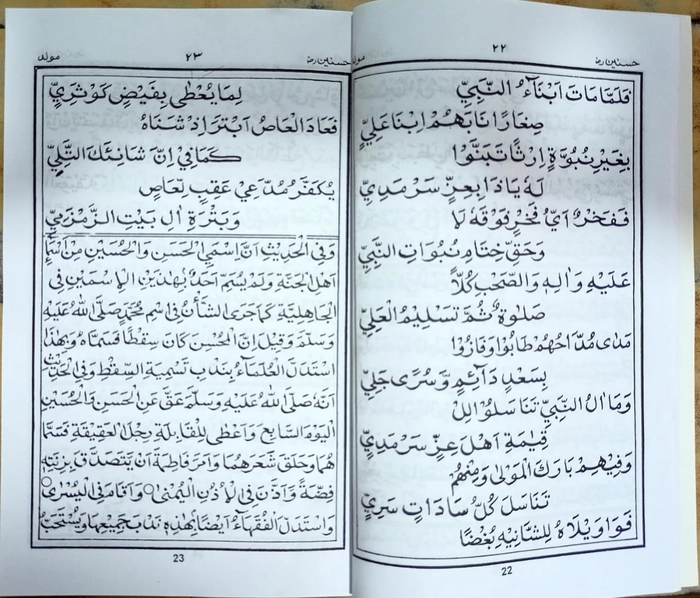 حسنين رض
٢٢
مولد
فَلَمَّا مَاتَ اَبْنَآءُ النَّبِيِّ
صِغَارًا نَابَهُمُ ابْنَا عَلِيٍّ
بِغَيْرِ نُبُوَّةٍ اِرْثًا تَبَنَّوْا
لَهُ يَا ذَا بِعِزٍّ سَرْمَدِيِّ
فَفَخْرٌ اَيُّ فَخْرٍ فَوْقَهُ لَا
وَحَقِّ خِتَامِ نُبُوَاتِ النَّبِيِّ
عَلَيْهِ وَاٰلِهِ وَالصَّحْبِ كُلًّا
صَلٰوةٌ ثُمَّ تَسْلِيْمُ الْعَلِيِّ
مَدٰى مُدَّاحُهُمْ طَابُوْا وَفَازُوْا
بِسَعْدٍ دَآئِمٍ وَّسُرًى جَلِيِّ
وَمَا اٰلُ النَّبِيِّ تَنَاسَلُوْا لِلْ
قِيٰمَةِ اَهْلَ عِزٍّ سَرْمَدِيِّ
وَفِيْهِمْ بَارَكَ الْمَوْلٰى وَمِنْهُمْ
تَنَاسَلَ كُلُّ سَادَاتٍ سَرِيِّ
فَوَاوَيْلَاهُ لِلشَّانِيْهِ بُغْضًا
22
حسنين رض
٢٣
مولد
لِمَا يُعْطٰى بِفَيْضٍ كَوْثَرِيِّ
فَعَادَ الْعَاصُ اَبْتَرَ اِذْ شَنَاهُ
كَمَا فِيْ اِنَّ شَانِئَكَ التَّلِيِّ
يُكَفَّرُ مُدَّعِيْ عَقِبٍ لِعَاصٍ
وَبَتْرَةِ اٰلِ بَيْتِ الزَّمْزَمِيِّ
وَفِي الْحَدِيْثِ اَنَّ اِسْمَيِ الْحَسَنِ وَالْحُسَيْنِ مِنْ اَسْمَآءِ
اَهْلِ الْجَنَّةِ وَلَمْ يُسَمَّ اَحَدٌ بِهٰذَيْنِ الْاِسْمَيْنِ فِي
الْجَاهِلِيَّةِ كَمَا جَرَى الشَّأْنُ فِي اسْمِ مُحَمَّدٍ صَلَّى اللهُ عَلَيْهِ
وَسَلَّمَ وَقِيْلَ اِنَّ الْمُحَسِّنَ كَانَ سِقْطًا فَسَمَّاهُ وَبِهٰذَا
اسْتَدَلَّ الْعُلَمَآءُ بِنَدْبِ تَسْمِيَةِ السِّقْطِ وَفِي الْحَدِيْثِ
اَنَّهُ صَلَّى اللهُ عَلَيْهِ وَسَلَّمَ عَقَّ عَنِ الْحَسَنِ وَالْحُسَيْنِ
الْيَوْمَ السَّابِعَ وَاَعْطٰى لِلْقَابِلَةِ رِجْلَ الْعَقِيْقَةِ فَسَمَّا
هُمَا وَحَلَقَ شَعْرَهُمَا وَاَمَرَ فَاطِمَةَ اَنْ يَّتَصَدَّقَ بِزِنَتِهِ
فِضَّةً وَاَذَّنَ فِي الْاُذُنِ الْيُمْنٰى وَاَقَامَ فِي الْيُسْرٰى
وَاسْتَدَلَّ الْفُقَهَآءُ اَيْضًا بِهٰذِهِ نَدْبَ جَمِيْعِهَا وَيُسْتَحَبُّ
23